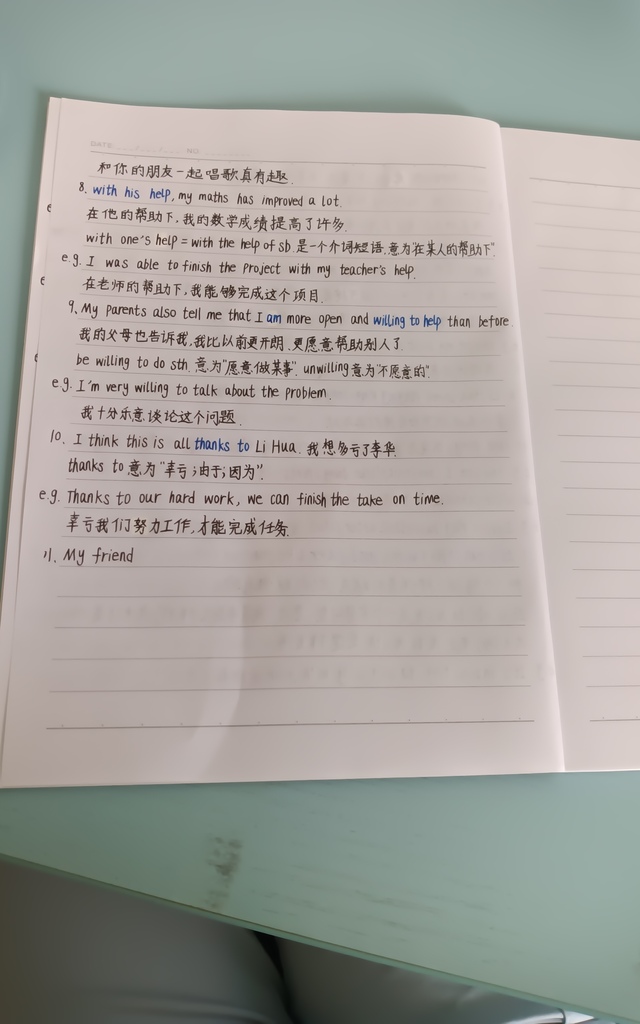 DATE NO.
和你的朋友一起唱歌真有趣.
8. with his help, my maths has improved a lot.
在他的帮助下,我的数学成绩提高了许多.
with one's help = with the help of sb 是一个介词短语.意为"在某人的帮助下".
e.g. I was able to finish the project with my teacher's help.
在老师的帮助下,我能够完成这个项目.
9. My parents also tell me that I am more open and willing to help than before.
我的父母也告诉我,我比以前更开朗.更愿意帮助别人了.
be willing to do sth. 意为"愿意做某事". unwilling意为"不愿意的".
e.g. I'm very willing to talk about the problem.
我十分乐意谈论这个问题.
10. I think this is all thanks to Li Hua. 我想多亏了李华.
thanks to 意为"幸亏;由于;因为".
e.g. Thanks to our hard work, we can finish the take on time.
幸亏我们努力工作,才能完成任务.
11. My friend